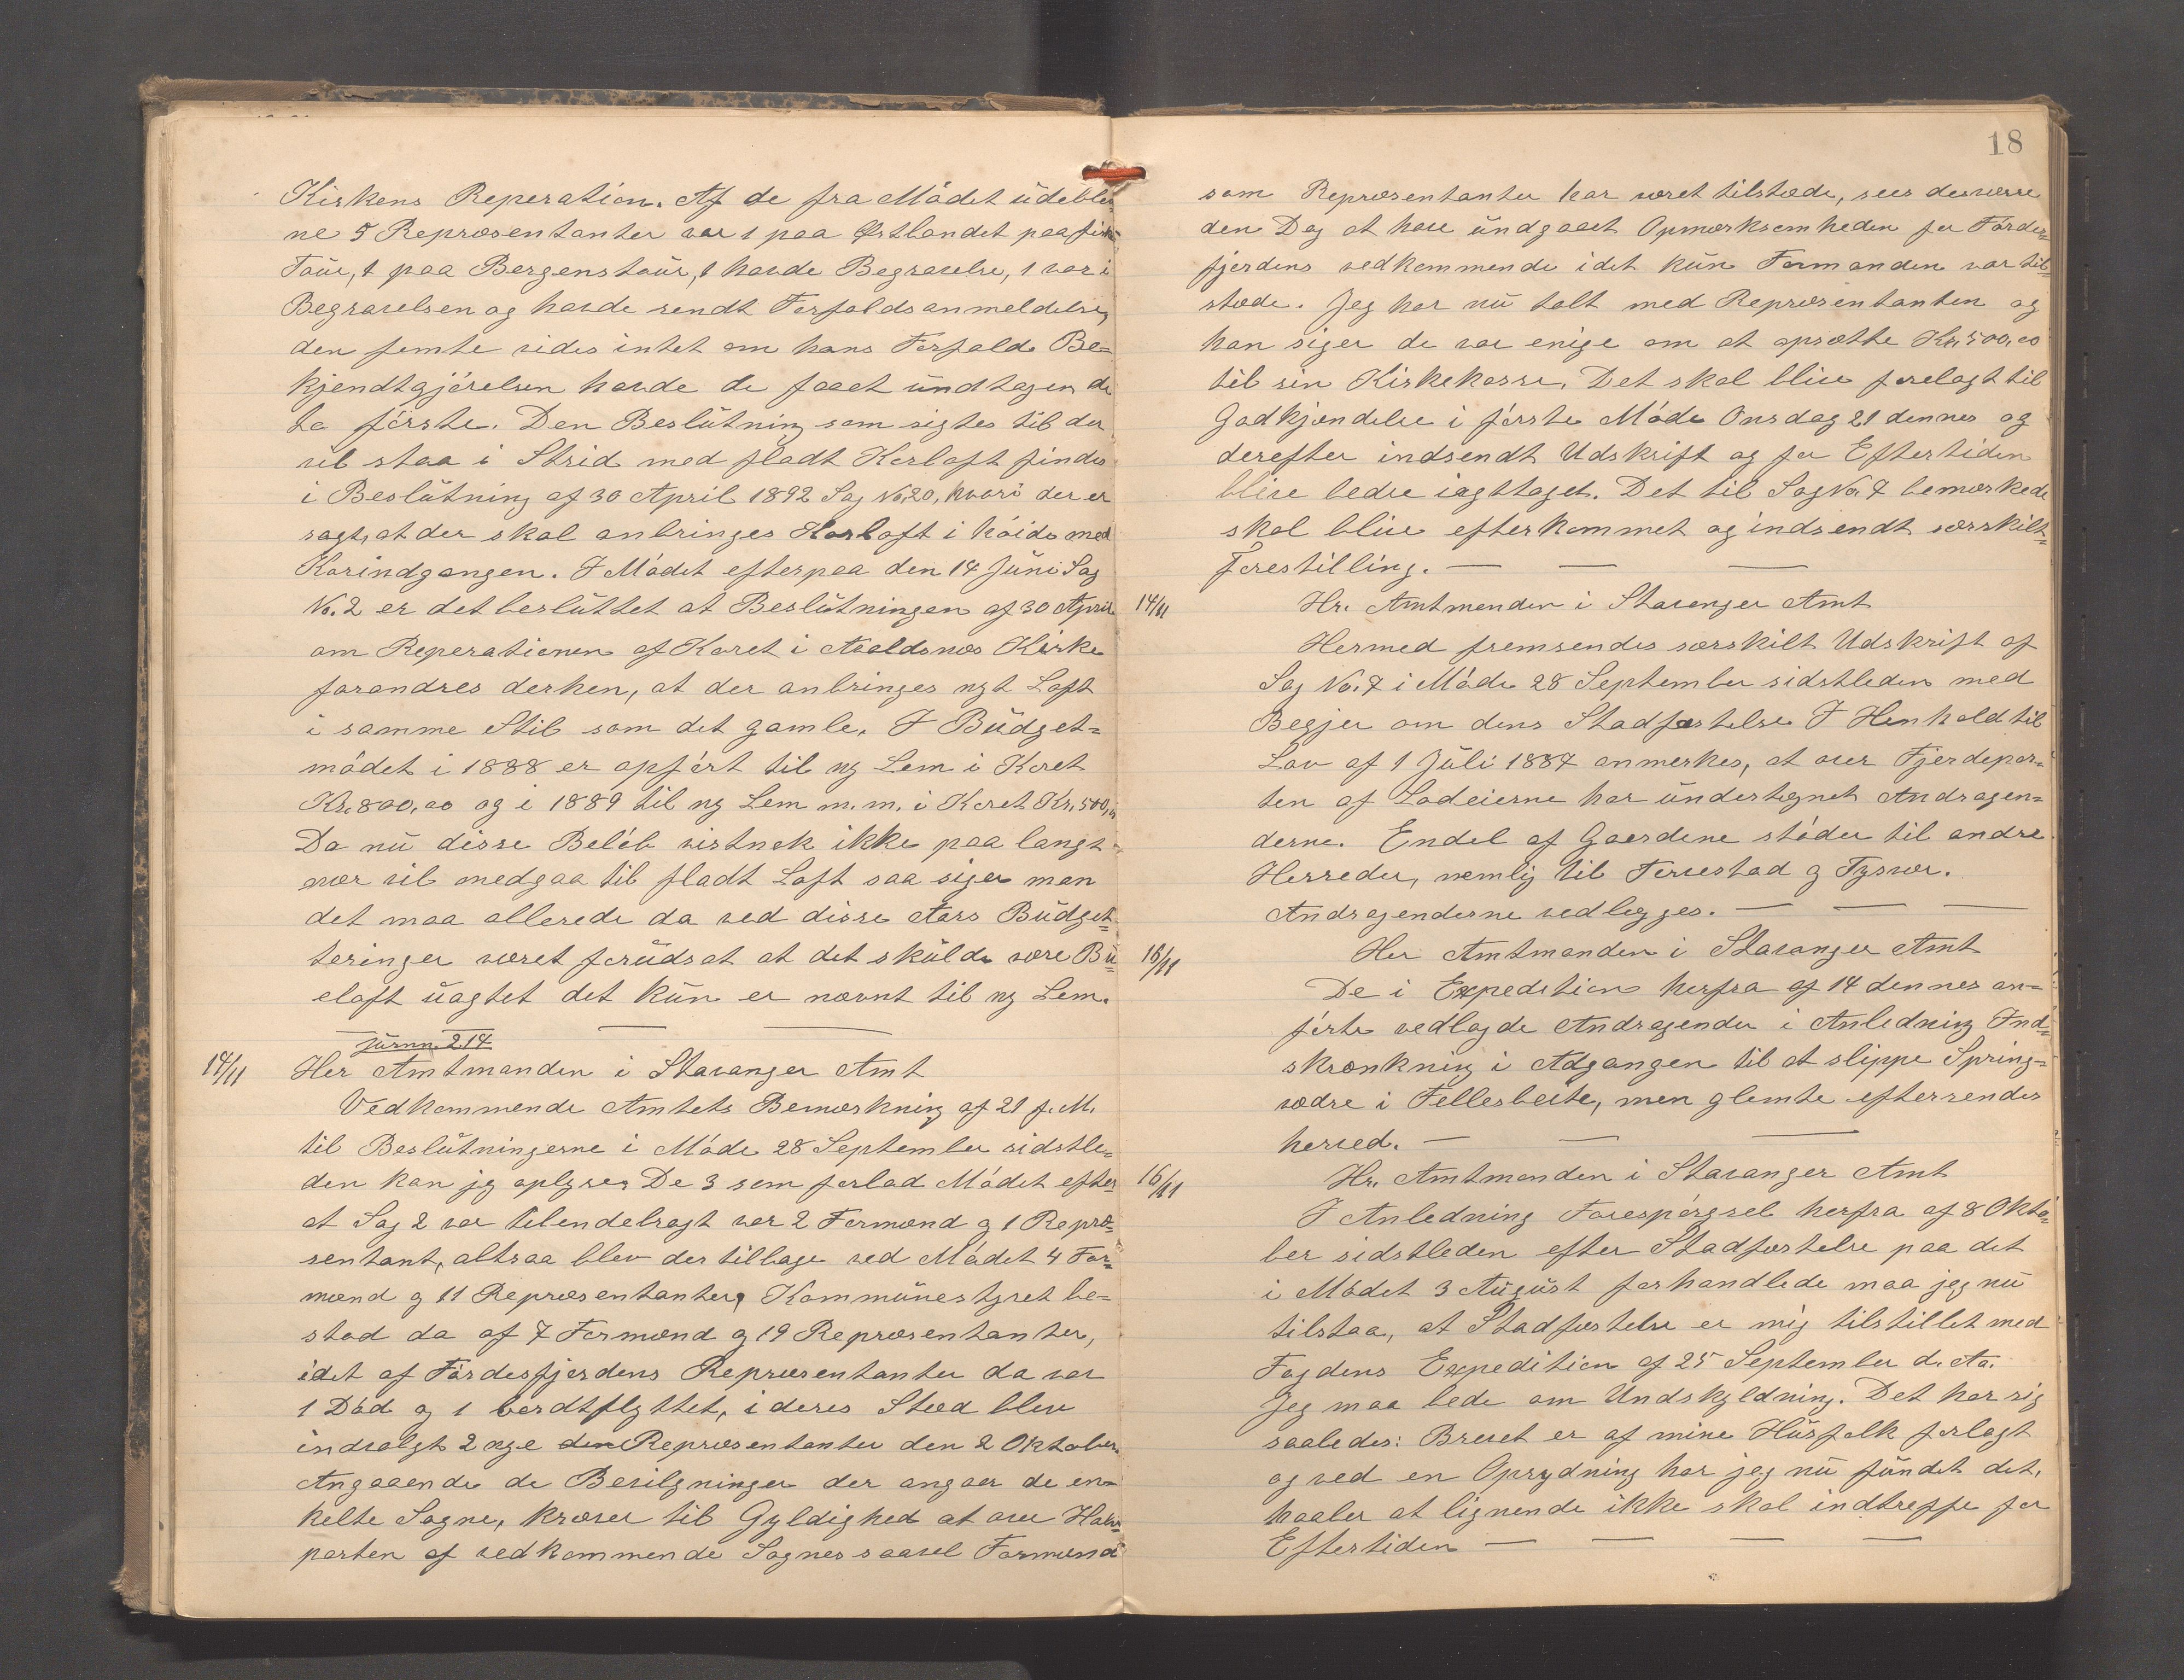 Kirkens Reperation. Af de fra Mödet udeblev-
ne 5 Repræsentanter var 1 paa Østlandet paa
Tour, 1 paa Bergenstour, 1 havde Begravelse, 1 var i
Begravelsen og havde sendt Forfaldsanmeldelse,
den femte vides intet om hans Forfald. Be-
kjendtgjörelsen havde de faaet undtagen de
to förste. Den Beslutning som sigtes til der
vil staa i Strid med fladt Korloft findes
i Beslutning af 30 April 1892 Sag No. 20, hvori der er
sagt, at der skal anbringes Korloft i höide med
Korindgangen. I Mödet efterpaa den 14 Juni Sag
No. 2 er det besluttet at Beslutningen af 30 April
om Reperationen af Koret i Avaldsnæs Kirke
forandres derhen, at der anbringes nyt Loft
i samme Stil som det gamle. I Budget-
mödet i 1888 er opfört til ny Lem i Koret
Kr. 800,00 og i 1889 til ny Lem m. m. i Koret Kr. 500,00
Da nu disse Belöb vistnok ikke paa langt
nær vil medgaa til fladt Loft saa siger man
det maa allerede da ved disse Aars Budget-
teringer været forudsat at det skulde være Bu-
eloft uagtet det kun er nævnt til ny Lem.
Journ. 214
14/11 Her Amtmanden i Stavanger Amt
Vedkommende Amtets Bemærkning af 21 f. M.
til Beslutningerne i Möde 28 September sidstle-
den kan jeg oplyse. De 3 som forlod Mödet efter
at Sag 2 var tilendebragt var 2 Formænd og 1 Repræ-
sentant, altsaa blev der tilbage ved Mödet 4 For-
mænd og 11 Repræsentanter. Kommunestyret be-
stod da af 7 Formænd og 19 Repræsentanter,
idet af Fördesfjordens Repræsentanter da var
1 Död og 1 bortflyttet, i deres Sted blev
indvalgt 2 nye den Repræsentanter den 2 Oktober.
Angaaende de Bevilgninger der angaar de en-
kelte Sogne, kræver til Gyldighed at over Halv-
parten af vedkommende Sognes saavel Formænd
18
som Repræsentanter har været tilstede, sees desværre
den Dag at have undgaaet Opmærksomheden for Fördes-
fjordens vedkommende idet kun Formanden var til-
stede. Jeg har nu talt med Repræsentanten og
han siger de var enige om at opsætte Kr. 500,00
til sin Kirkekasse. Det skal blive forelagt til
Godkjendelse i förste Möde Onsdag 21 dennes og
derefter indsendt Udskrift og for Eftertiden
blive bedre iagttaget. Det til Sag No. 7 bemærkede
skal blive efterkommet og indsendt særskilt
Forestilling.
14/11 Hr. Amtmanden i Stavanger Amt
Hermed fremsendes særskilt Udskrift af
Sag No. 7 i Möde 28 September sidstleden med
Begjær om dens Stadfæstelse. I Henhold til
Lov af 1 Juli 1887 anmerkes, at over Fjerdepar-
ten af Lodeierne har undertegnet Andragen-
derne. Endel af Gaardene stöder til andre
Herreder, nemlig til Torvestad og Tysvær.
Andragenderne vedlegges.
16/11 Her Amtmanden i Stavanger Amt
De i Expedition herfra af 14 dennes an-
förte vedlagde Andragender i Anledning Ind-
skrænkning i Adgangen til at slippe Spring-
vædre i Fellesbeite, men glemte eftersendes
herved.
16/11 Hr. Amtmanden i Stavanger Amt
I Anledning Forespörgsel herfra af 8 Okto-
ber sidstleden efter Stadfæstelse paa det
i Mödet 3 August forhandlede maa jeg nu
tilstaa, at Stadfæstelse er mig tilstillet med
Fogdens Expedition af 25 September d. A.
Jeg maa bede om Undskyldning. Det har sig
saaledes: Brevet er af mine Husfolk forlagt
og ved en Oprydning har jeg nu fundet det,
haaber at lignende ikke skal indtreffe for
Eftertiden